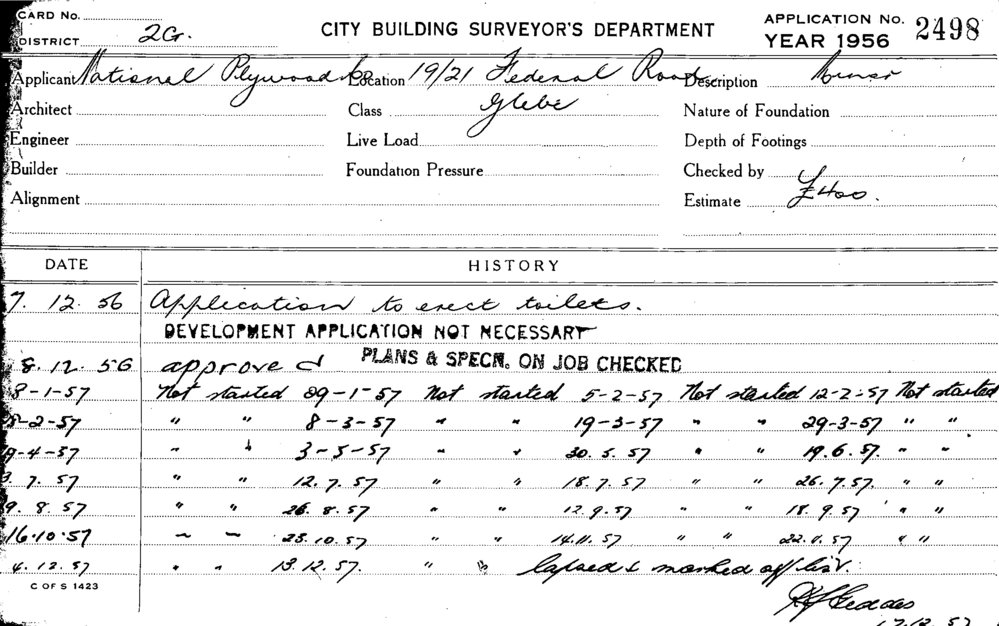 CARD No.
DISTRICT 2G.
CITY BUILDING SURVEYOR'S DEPARTMENT
APPLICATION No. 2498
YEAR 1956
Applicant National Plywood Location 19/21 Federal Road Description Minor
Architect Class Glebe Nature of Foundation
Engineer Live Load Depth of Footings
Builder Foundation Pressure Checked by
Alignment Estimate £400.
DATE HISTORY
7. 12. 56 Application to erect toilets.
DEVELOPMENT APPLICATION NOT NECESSARY
8. 12. 56 approved PLANS & SPECN. ON JOB CHECKED
8-1-57 Not started 29-1-57 Not started 5-2-57 Not started 12-2-57 Not started
-2-57 " " 8-3-57 " " 19-3-57 " " 29-3-57 " "
9-4-57 " " 3-5-57 " " 30.5.57 " " 19.6.57. " "
3. 7. 57 " " 12.7.57 " " 18.7.57 " " 26.7.57. " "
9. 8. 57 " " 26.8.57 " " 12.9.57 " " 18.9.57 " "
16.10.57 " " 25.10.57 " " 14.11.57 " " 22.11.57 " "
4. 12. 57 " " 13.12.57. " " lapsed & marked off list.
C OF S 1423
Geddes
17.12.57